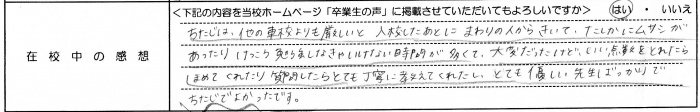 ＜下記の内容を当校ホームページ「卒業生の声」に掲載させていただいてもよろしいですか＞ はい ・ いいえ
在校中の感想
ちたじは、他の車校よりも厳しいと入校したあとに まわりの人からきいて、たしかにムジュンが
あったり けっこう 勉強しなきゃいけない時間が多くて、大変だったけど、いい点数をとれたら
ほめてくれたり 質問したらとても丁寧に教えてくれたし、とても優しい先生ばっかりで
ちたじでよかったです。